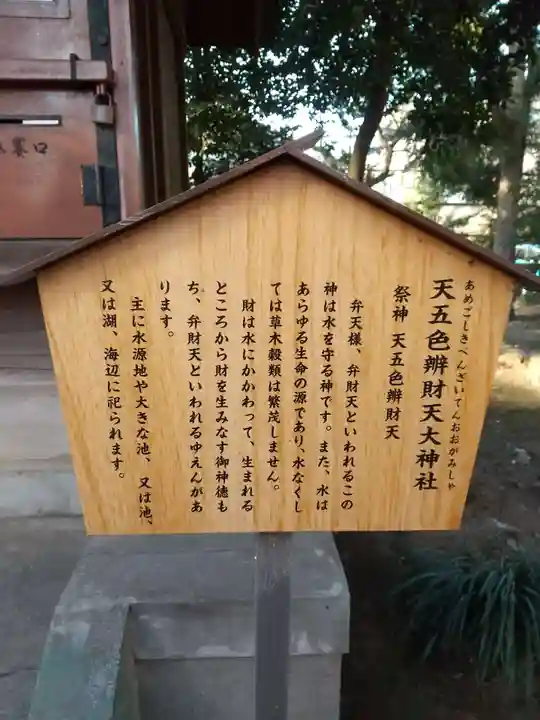 あめごしきべんざいてんおおがみしゃ
天五色辨財天大神社
祭神 天五色辨財天
弁天様、弁財天といわれるこの
神は水を守る神です。また、水は
あらゆる生命の源であり、水なくし
ては草木穀類は繁茂しません。
財は水にかかわって、生まれる
ところから財を生みなす御神徳も
ち、弁財天といわれるゆえんがあ
ります。
主に水源地や大きな池、又は池、
又は湖、海辺に祀られます。
口